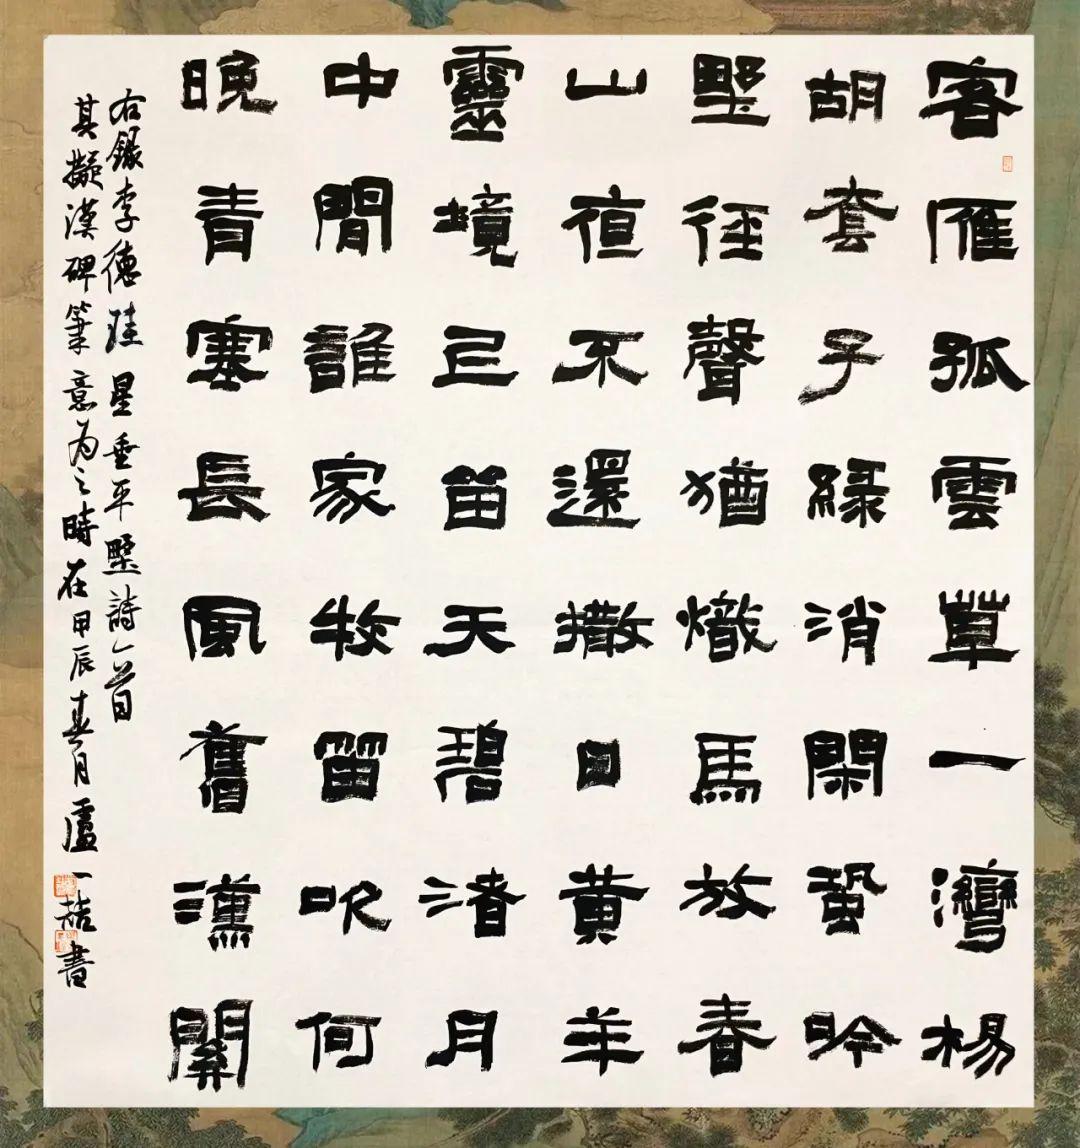 客雁孤雲草一灣楊
胡套子緑消閑蛩吟
墅徑聲猶熾馬放春
山亱不還撒日黃羊
靈境已笛天碧渚月
中間誰家牧留吹何
晚青塞長風舊漢關
右錄李德珪星垂平墅詩一首
其擬漢碑筆意為之時在甲辰春月盧一喆書